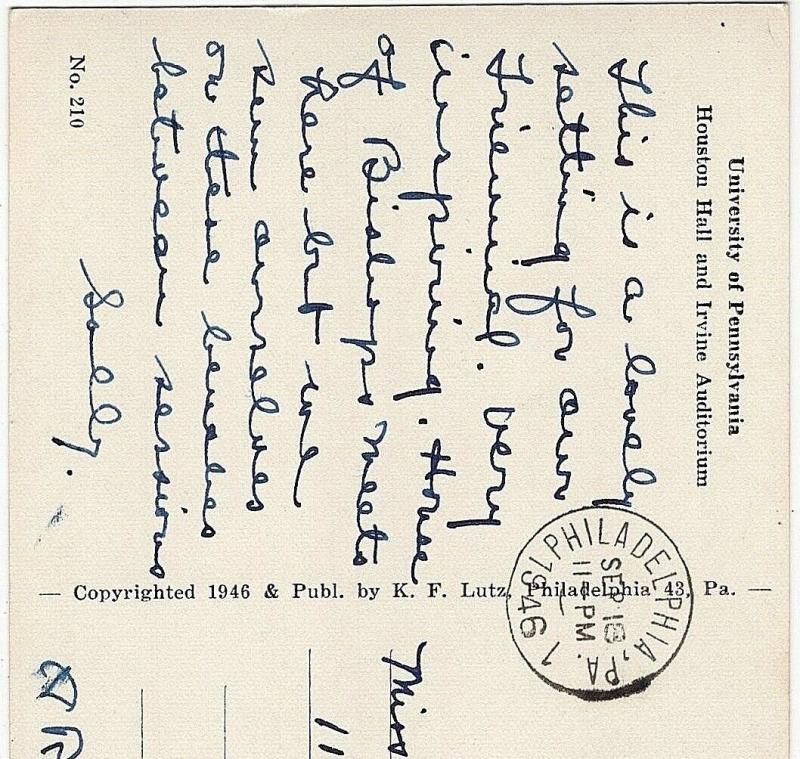 University of Pennsylvania
Houston Hall and Irvine Auditorium
This is a lovely
setting for our
Triennial. Very
inspiring. House
of Bishops meets
here but we
sun ourselves
on these benches
between sessions
Sally.
No. 210
— Copyrighted 1946 & Publ. by K. F. Lutz, Philadelphia 43, Pa. —
PHILADELPHIA, PA.
SEP 18
11 PM
1946
Miss